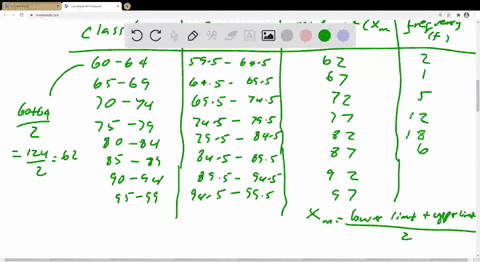 Class (Xm frequency
(f)
60-64 59.5-64.5 62 2
65-69 64.5-69.5 67 1
70-74 69.5-74.5 72 5
75-79 74.5-79.5 77 12
80-84 79.5-84.5 82 18
85-89 84.5-89.5 87 6
90-94 89.5-94.5 92
95-99 94.5-99.5 97
60+64
2
= 124 = 62
2
Xm = lower limit + upper limit
2